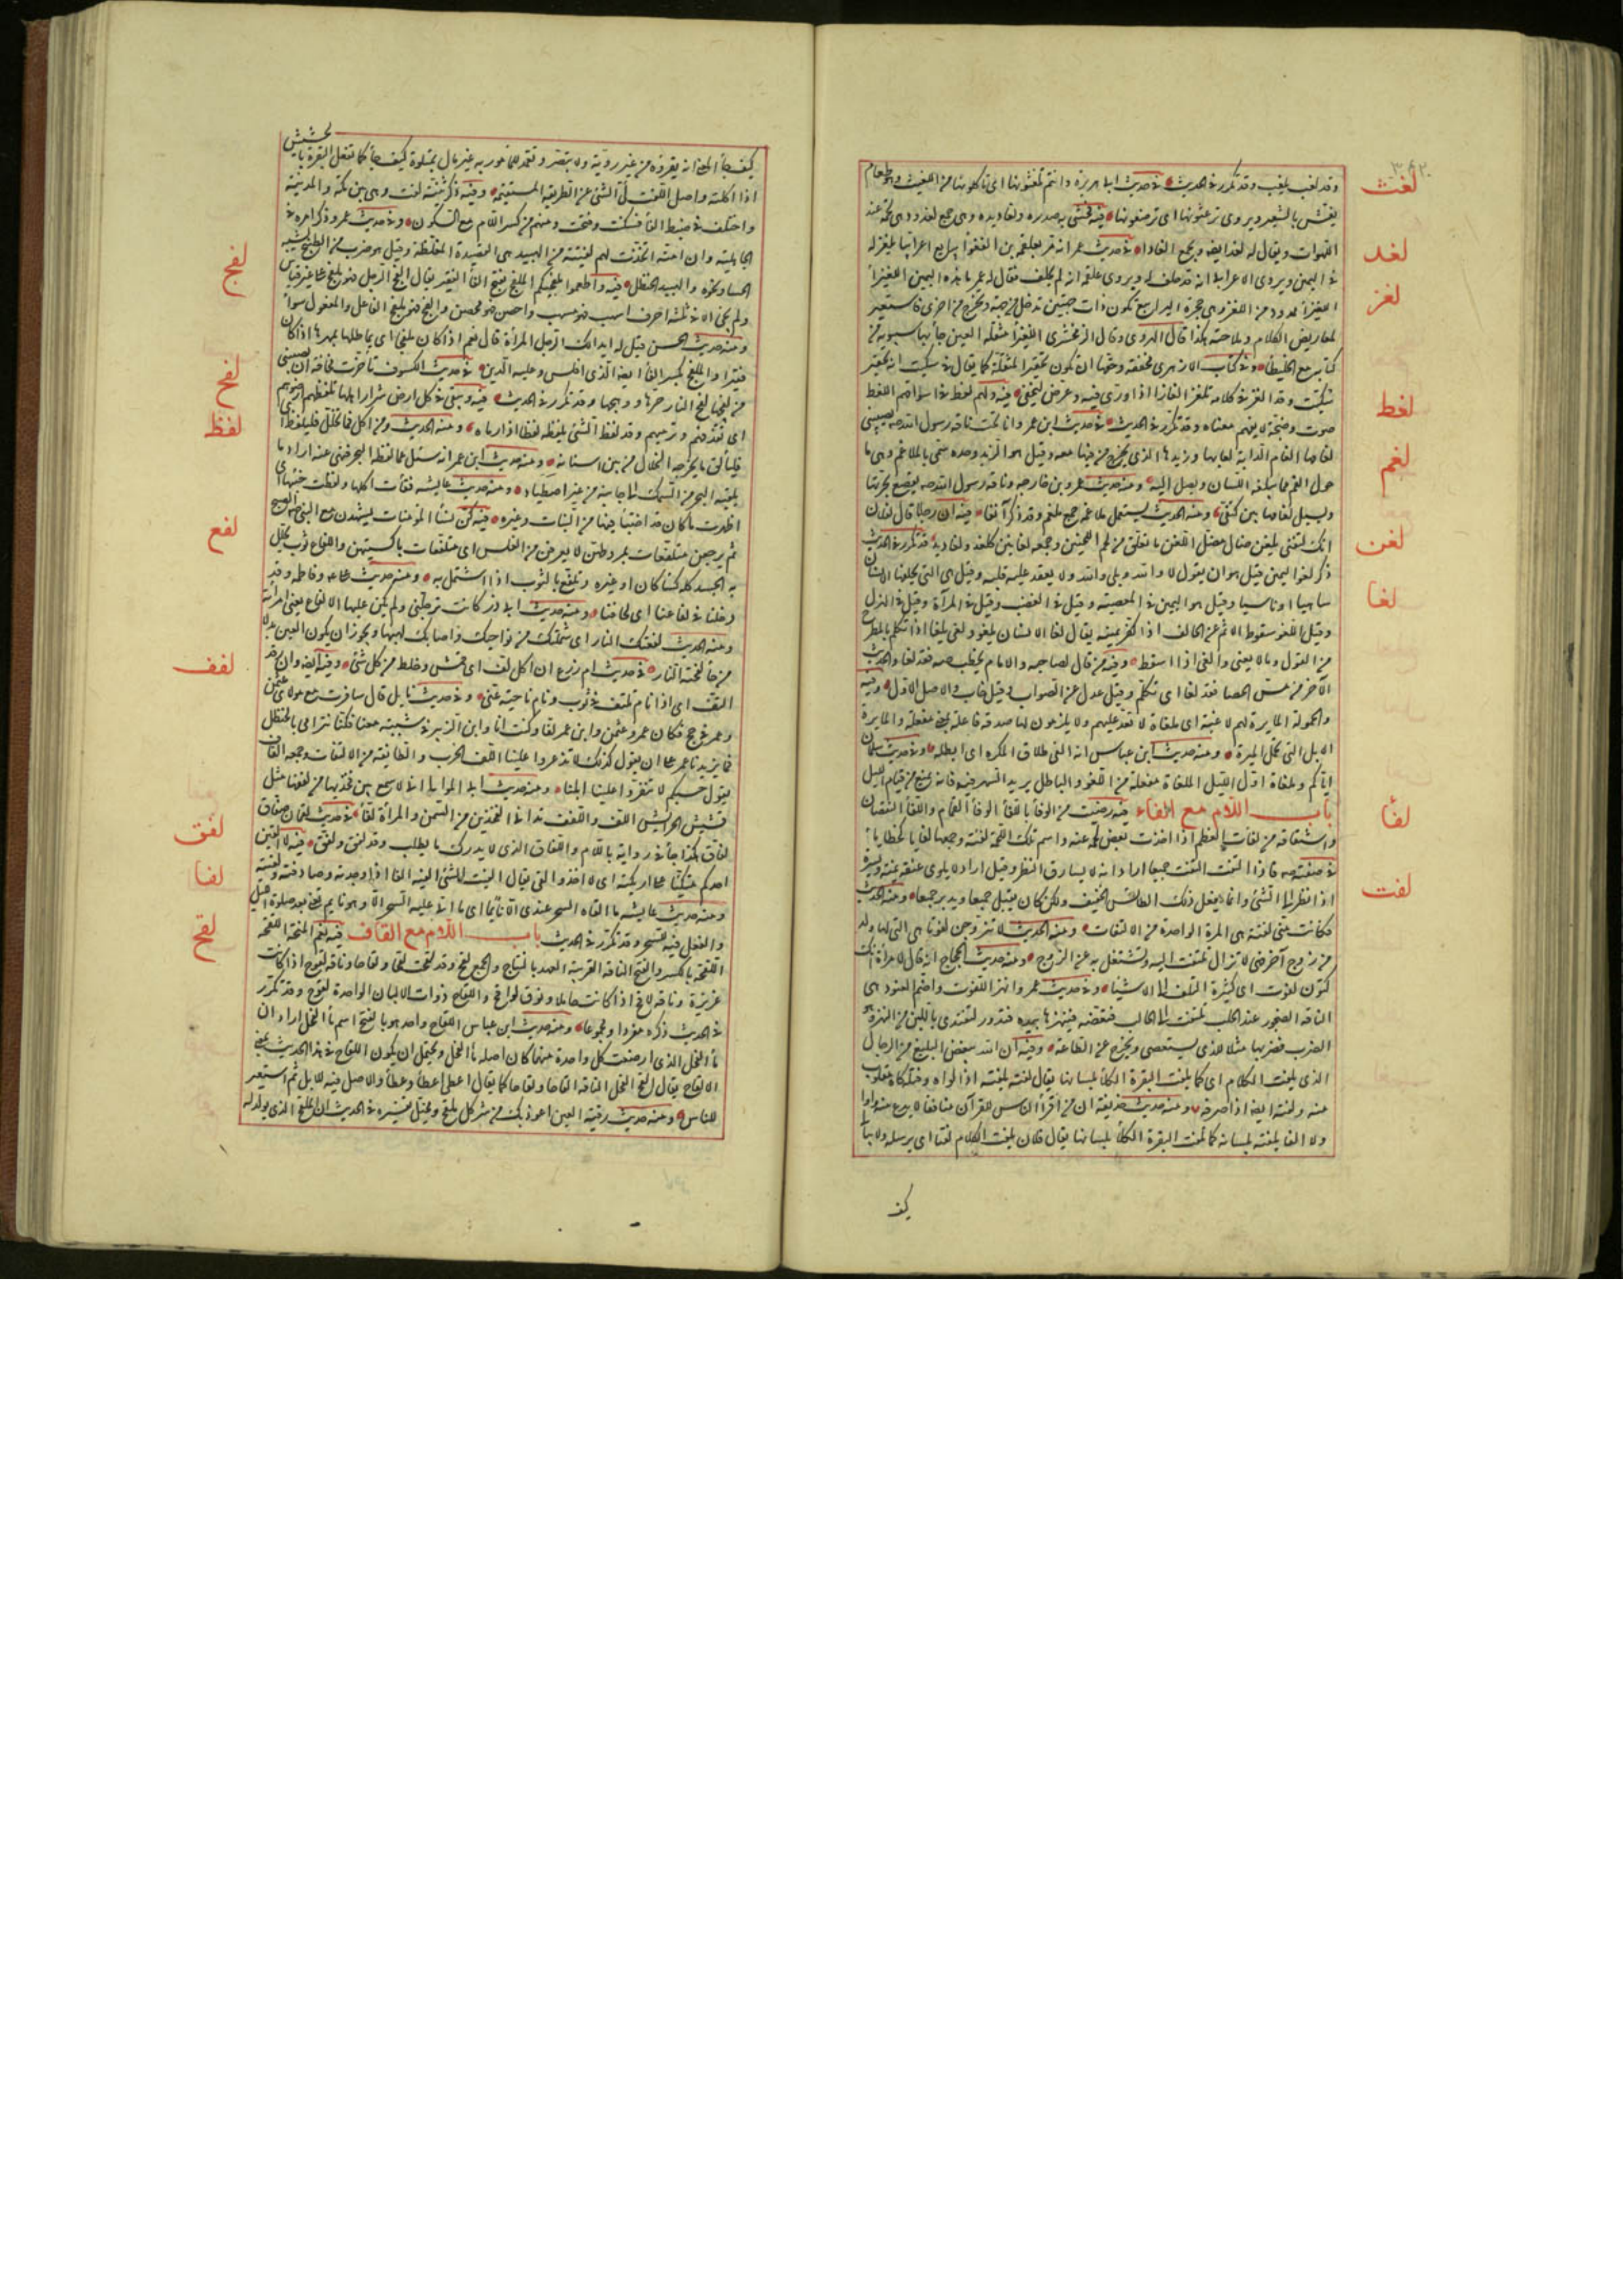 وقد لغب يلغب وقد تكرر في الحديث في حديث ابي هريرة وانتم تلغثونها اي تأكلونها من اللغيث وهو طعام
لغث
يغش بالشعير ويروى ترغثونها اي ترضعونها فيه فحشى به صدره ولغاديده وهي جمع لغدود وهي لحمة عند
لغد
اللهوات ويقال له لغد ايضا ويجمع الغادا في حديث عمر انه مر بعلقمة بن الفغواء يبايع اعرابيا يلغز له
لغز
في اليمين ويرى الاعرابي انه قد حلف له ويرى علقمة انه لم يحلف فقال له عمر ما هذه اليمين اللغيزاء
اللغيزاء ممدود من اللغز وهي حجرة اليرابيع تكون ذات جهتين تدخل من جهة وتخرج من اخرى فاستعير
لمعاريض الكلام وملاحنه هكذا قال الهروى وقال الزمخشرى اللغيزاء مثقلة الغين جاء بها سيبويه في
كتابه مع الخليطاء وفي كتاب الازهرى مخففة وحقها ان تكون تحقير المثقلة كما يقال في سكيت انه تحقير
سكيت وقد الغز في كلامه يلغز الغازا اذا ورى فيه وعرض ليخفى فيه ولهم لغط في اسواقهم اللغط
لغط
صوت وضجة لا يفهم معناه وقد تكرر في الحديث في حديث ابن عمر وانا تحت ناقة رسول الله صم يصيبني
لغم
لغامها لغام الدابة لعابها وزبدها الذي يخرج من فيها معه وقيل هو الزبد وحده سمى بالملاغم وهي ما
حول الفم مما يبلغه اللسان ويصل اليه ومنه حديث عمرو بن خارجة وناقة رسول الله صم تقصع بجرتها
ويسيل لغامها بين كتفي ومنه الحديث يستعمل ملاغمه جمع ملغم وقد ذكر آنفا فيه ان رجلا قال لفلان
لغن
انك لتفتى بلغن ضال مضل اللغن ما تعلق من لحم اللحيين وجمعه لغانين كلغد ولغاديد قد تكرر في الحديث
لغا
ذكر لغو اليمين قيل هو ان يقول لا والله وبلى والله ولا يعقد عليه قلبه وقيل هي التي يحلفها الانسان
ساهيا او ناسيا وقيل هو اليمين في المعصية وقيل في الغضب وقيل في المرآء وقيل في الهزل
وقيل اللغو سقوط الاثم عن الحالف اذا كفر يمينه يقال لغا الانسان يلغو ولغى يلغا اذا تكلم بالمطرح
من القول وما لا يعنى والغى اذا اسقط وفيه من قال لصاحبه والامام يخطب صه فقد لغا والحديث
الآخر من مس الحصا فقد لغا اى تكلم وقيل عدل عن الصواب وقيل خاب والاصل الاول وفيه
والحمولة المايرة لهم لاغية اى ملغاة لا تعد عليهم ولا يلزمون لها صدقة فاعلة بمعنى مفعلة والمايرة
الابل التي تحمل الميرة ومنه حديث ابن عباس انه الغى طلاق المكره اى ابطله وفي حديث سلمان
اياكم وملغاة اول الليل الملغاة مفعلة من اللغو والباطل يريد السهر فيه فانه يمنع من قيام الليل
باب اللام مع الفاء فيه رضيت من الوفاء باللفاء الوفاء التمام واللفاء النقصان
لفأ
واشتقاقه من لفأت العظم اذا اخذت بعض لحمه عنه واسم تلك اللحمة لفئة وجمعها لفايا كخطايا
في صفته صم فاذا التفت التفت جميعا اراد انه لا يسارق النظر وقيل اراد لا يلوى عنقه يمنة ويسرة
لفت
اذا نظر الى الشئ وانما يفعل ذلك الطائش الخفيف ولكن كان يقبل جميعا ويدبر جميعا ومنه الحديث
فكانت منى لفتة هي المرة الواحدة من الالتفات ومنه الحديث لا تتزوجن لفوتا هي التي لها ولد
من زوج آخر فهي لا تزال تلتفت اليه وتشتغل به عن الزوج ومنه حديث الحجاج انه قال لامرأة انك
كتون لفوت اى كثيرة التلفت الى الاشياء وفي حديث عمر وانهز اللفوت واضم العنود هي
الناقة الضجور عند الحلب تلتفت الى الحالب فتعضه فينهزها بيده فتدر لتفتدى باللبن من النهز وهو
الضرب فضربها مثلا للذى يستعصى ويخرج عن الطاعة وفيه ان الله يبغض البليغ من الرجال
الذى يلفت الكلام اى كما يلفت البقرة الكلأ بلسانها يقال لفته يلفته اذا لواه وفتله وكانه مقلوب
عنه ولفته ايضا اذا صرفه ومنه حديث حذيفة ان من اقرأ الناس للقرآن منافقا لا يدع منه واوا
ولا الفا يلفته بلسانه كما تلفت البقرة الكلأ بلسانها يقال فلان يلفت الكلام لفتا اى يرسله ولا يبالى
كيف
كيف جاء المعنى انه يقرؤه من غير روية ولا تبصر وتعمد للمأمور به غير مبال بمتلوه كيف جاء كما تفعل البقرة بالحشيش
اذا اكلته واصل اللفت لى الشئ عن الطريقة المستقيمة وفيه ذكر ثنية لفت وهي بين مكة والمدينة
واختلف في ضبط الفاء فسكنت وفتحت ومنهم من كسر اللام مع السكون وفي حديث عمر وذكر امره في
الجاهلية وان امه اتخذت لهم لفيتة من الهبيد هي العصيدة المغلظة وقيل هو ضرب من الطبيخ يشبه
الحساء ونحوه والهبيد الحنظل فيه واطعموا ملفجيكم الملفج بفتح الفاء الفقير يقال الفج الرجل فهو ملفج على غير قياس
لفج
ولم يجئ الا في ثلثة احرف اسهب فهو مسهب واحصن فهو محصن والفج فهو ملفج الفاعل والمفعول سواء
ومنه حديث الحسن قيل له ايدالك الرجل المرأة قال نعم اذا كان ملفجا اى يماطلها بمهرها اذا كان
فقيرا والملفج بكسر الفاء ايضا الذى افلس وعليه الدين في حديث الكسوف تأخرت مخافة ان يصيبني
لفح
من لفحها لفح النار حرها ووهجها وقد تكرر في الحديث فيه ويبقى في كل ارض شرار اهلها تلفظهم ارضوهم
لفظ
اى تقذفهم وترميهم وقد لفظ الشئ يلفظه لفظا اذا رماه ومنه الحديث ومن اكل فما تخلل فليلفظ اى
فليلق ما يخرجه الخلال من بين اسنانه ومنه حديث ابن عمر انه سئل عما لفظه البحر فنهى عنه اراد ما
يلقيه البحر من السمك الى جانبه من غير اصطياد ومنه حديث عايشة فقأت اكلها ولفظت خبيئها اى
اظهرت ما كان قد اختبأ فيها من النبات وغيره فيه كن نساء المؤمنات يشهدن مع النبي صم الصبح
لفع
ثم يرجعن متلفعات بمروطهن لا يعرفن من الغلس اى متلففات باكسيتهن واللفاع ثوب يجلل
به الجسد كله كساء كان او غيره وتلفع بالثوب اذا اشتمل به ومنه حديث علي وفاطمة وقد
دخلنا في لفاعنا اى لحافنا ومنه حديث ابي ذر كانت ترجلني ولم يكن عليها الا لفاع يعني امرأته
ومنه الحديث لفعتك النار اى شملتك من نواحيك واصابك لهبها ويجوز ان يكون العين بدلا
من حاء لفحته النار في حديث ام زرع ان اكل لف اى قمش وخلط من كل شئ وفيه ايضا وان رقد
لفف
التف اى اذا نام تلفف في ثوب ونام ناحية عنى وفي حديث نايل قال سافرت مع مولاى عثمن
وعمر في حج فكان عمر وعثمن وابن عمر لفا وكنت انا وابن الزبير في شببة معنا لفا فكنا نترامى بالحنظل
فما يزيدنا عمر على ان يقول كذلك لا تذعروا علينا اللف الحزب والطائفة من الالتفاف وجمعه الفاف
يقول حسبكم لا تنفروا علينا ابلنا ومنه حديث ابي الموالي اني لاسمع بين فخذيها من لففها مثل
قشيش الحرابش اللف واللفف تداني الفخذين من السمن والمرأة لفاء في حديث لقمان صفاق
لفاق هكذا جاء في رواية باللام واللفاق الذى لا يدرك ما يطلب وقد لفق ولفق فيه لا الفين
لفق
احدكم متكئا على اريكته اى لا اجد والقى يقال الفيت الشئ الفيه الفاء اذا وجدته وصادفته ولقيته
لفا
ومنه حديث عايشة ما الفاه السحر عندى الا نائما اى ما اتى عليه السحر الا وهو نايم تعنى بعد صلوة الليل
والفعل فيه للسحر وقد تكرر في الحديث باب اللام مع القاف فيه نعم المنحة اللقحة
لقح
اللقحة بالكسر والفتح الناقة القريبة العهد بالنتاج والجمع لقح وقد لقحت لقحا ولقاحا وناقة لقوح اذا كانت
غزيرة وناقة لاقح اذا كانت حاملا ونوق لواقح واللقاح ذوات الالبان الواحدة لقوح وقد تكرر
في الحديث ذكره مفردا ومجموعا ومنه حديث ابن عباس اللقاح واحد هو بالفتح اسم ماء الفحل اراد ان
ماء الفحل الذى ارضعت كل واحدة منهما كان اصله ماء الفحل ويحتمل ان يكون اللقاح في هذا الحديث بمعنى
الالقاح يقال القح الفحل الناقة القاحا ولقاحا كما يقال اعطى اعطاء وعطاء والاصل فيه للابل ثم استعير
للناس ومنه حديث رقية العين اعوذ بك من شر كل ملقح ومخبل تفسيره في الحديث ان الملقح الذى يولد له